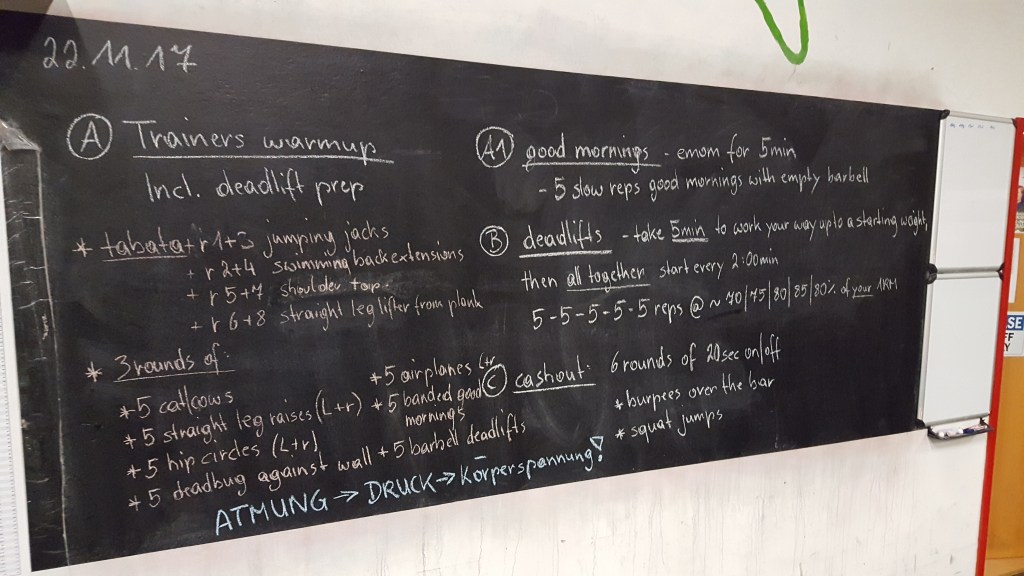 22.11.17
A Trainers warmup
Incl. deadlift prep
* tabata + r 1+3 jumping jacks
+ r 2+4 swimming backextensions
+ r 5+7 shoulder tap
+ r 6+8 straight leg lifter from plank
* 3 rounds of:
*5 cat/cows
*5 straight leg raises (L+r)
*5 hip circles (L+r)
*5 deadbug against wall
*5 airplanes L+r
*5 banded good mornings
*5 barbell deadlifts
ATMUNG → DRUCK → Körperspannung!
A1 good mornings - emom for 5min
- 5 slow reps good mornings with empty barbell
B deadlifts - take 5min to work your way up to a starting weight,
then all together start every 2:00min
5-5-5-5-5 reps @ ~ 70|75|80|85|80% of your 1RM
C cashout: 6 rounds of 20sec on/off
* burpees over the bar
* squat jumps
SE